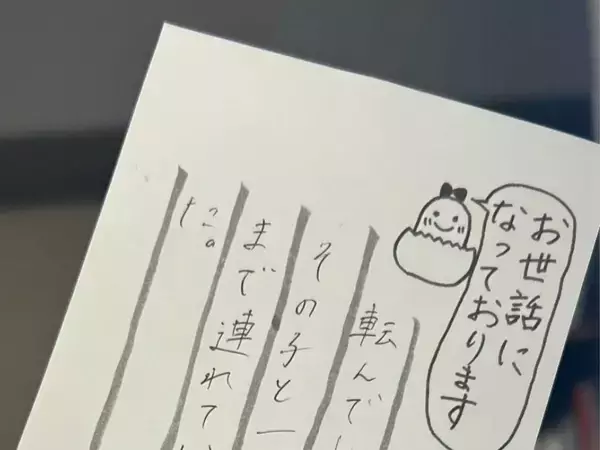 お世話に
なっております
転んでい
その子と一
まで連れてい
た。